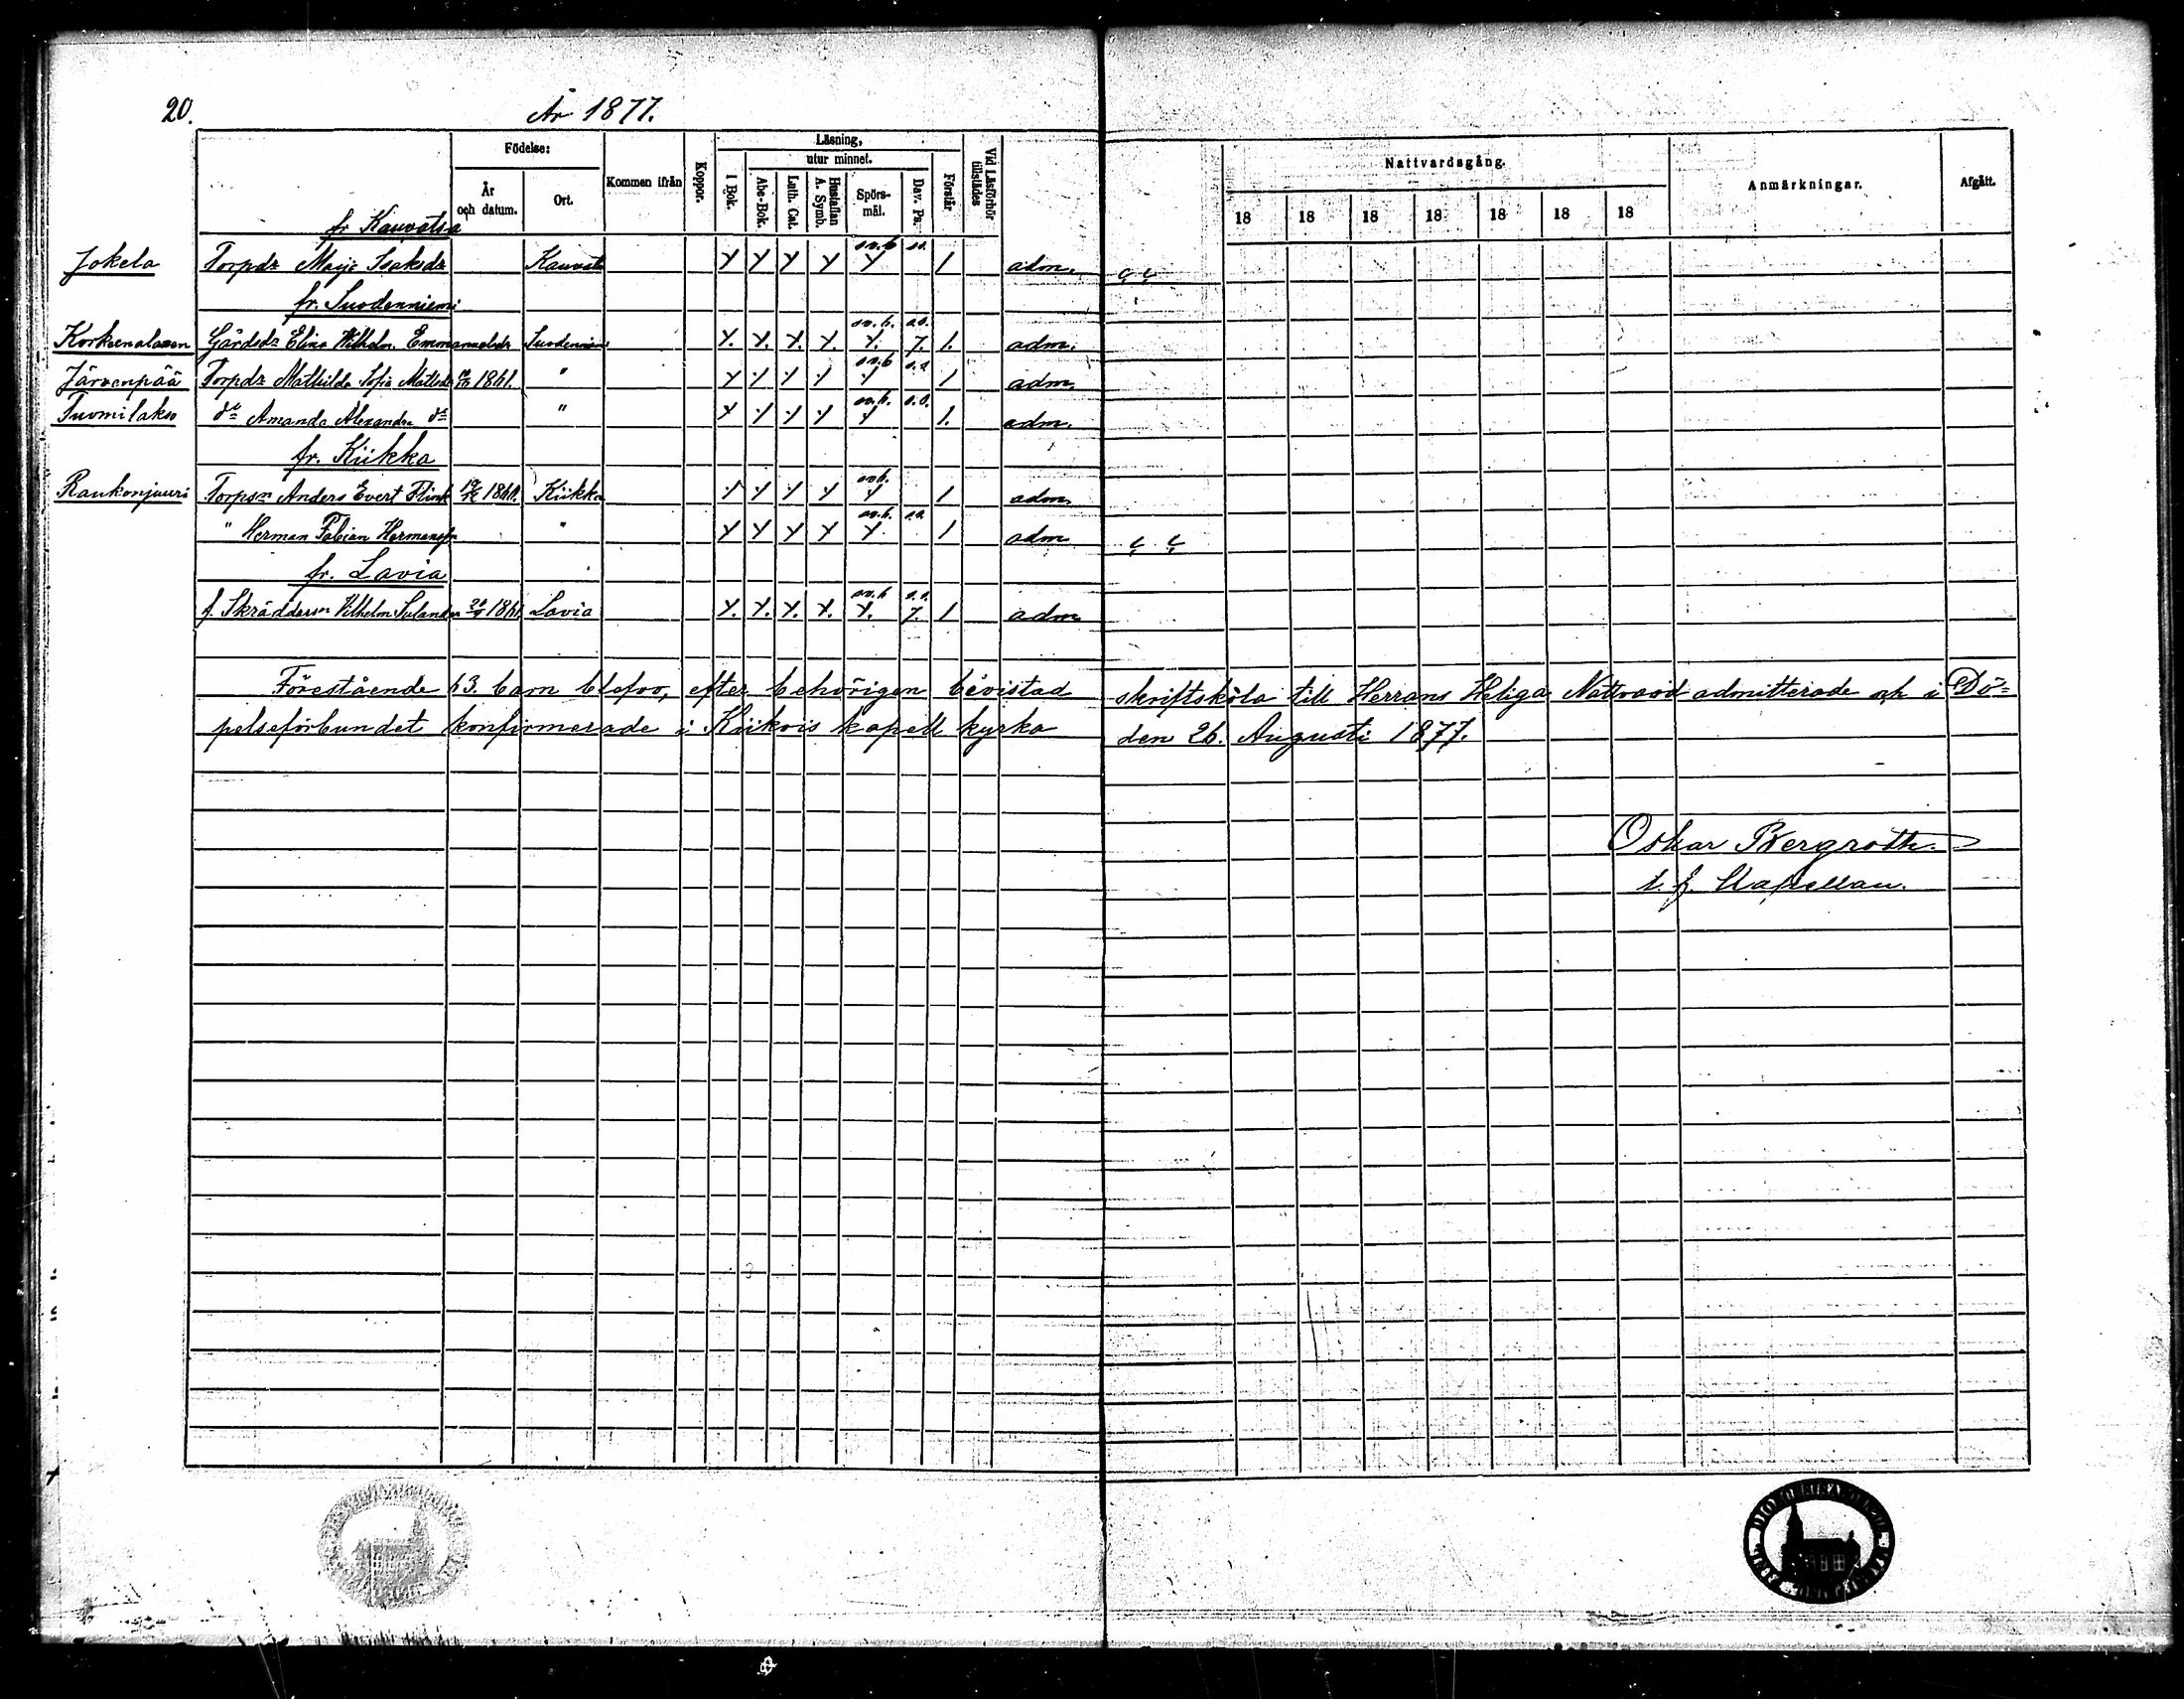 20.
År 1877.
Födelse:
År och datum.
Ort.
Kommen ifrån
Koppor.
Läsning,
I Bok.
utur minnet.
Abc-Bok.
Luth. Cat.
Hustaflan A. Symb.
Spörs-mål.
Dav. Ps.
Förstår
Vid Läsförhör tillstädes
Nattvardsgång.
18 18 18 18 18 18 18
Anmärkningar.
Afgått.
fr Kauvatsa
Jokela Torpdr Maja Isaksdr Kauvatsa sv.b so. 1 adm.
fr. Suodenniemi
Gårdsdr Elina Vilhelm. Emmanuelsdr Suodenniemi sv.b. s.o. 7. 1. adm.
Järvenpää Torpdr Mathilda Sofia Mattsdr 1861. " sv.b 1 adm.
Tuomilakso do Amanda Alexandra do " sv.b. s.o. 1. adm.
fr. Kiikka
Raukonjuuri Torpsn Anders Evert Flink 1861. Kiikka svb. 1 adm.
" Herman Fabian Hermansson " sv.b. s.o. 1 adm
fr. Lavia
f. Skräddarsn Vilhelm 1861 Lavia sv.b s.o. 7. 1 adm
Förestående 63. barn blefvo, efter behörigen bevistad skriftskola till Herrans Heliga Nattvard admitterade och i Dö=
pelseförbundet konfirmerade i Kiikois kapell kyrka den 26. Augusti 1877.
Oskar Bergroth.
t. f. Kapellan.